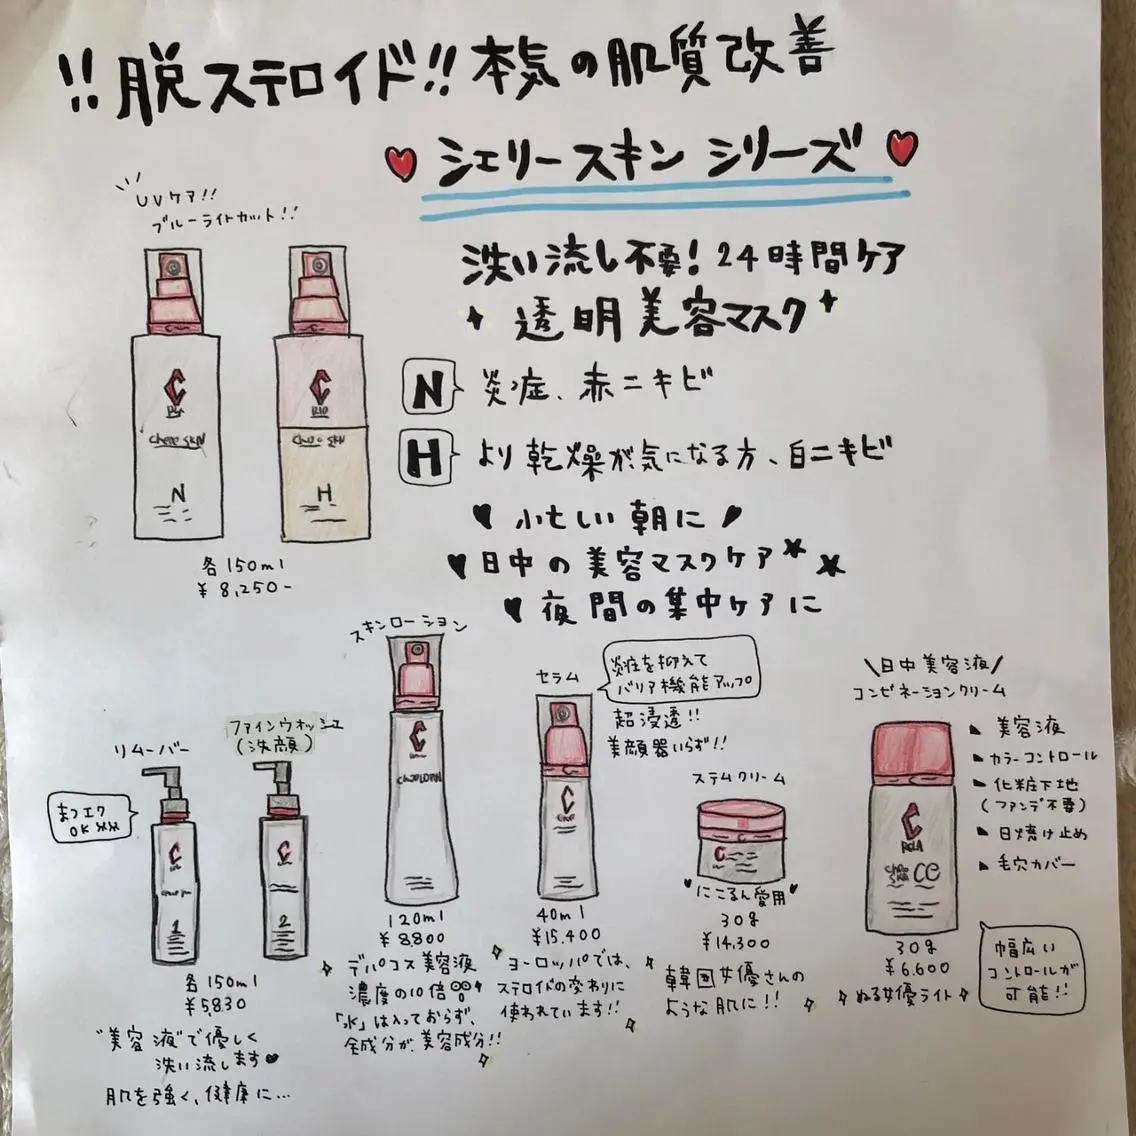 !!脱ステロイド!!本気の肌質改善
シェリースキンシリーズ
UVケア!!
ブルーライトカット!!
洗い流し不要!24時間ケア
透明美容マスク
N 炎症、赤ニキビ
H より乾燥が気になる方、白ニキビ
忙しい朝に
日中の美容マスクケア
夜間の集中ケアに
C
C
N
H
各150ml
¥8,250-
リムーバー
まつエク
OK
C
1
ファインウォッシュ
(洗顔)
2
各150ml
¥5,830
"美容液"で優しく
洗い流します
肌を強く、健康に...
スキンローション
C
120ml
¥8,800
デパコス美容液
濃度の10倍
「水」は入っておらず、
全成分が美容成分!!
セラム
炎症を抑えて
バリア機能アップ
超浸透!!
美顔器いらず!!
C
40ml
¥15.400
ヨーロッパでは、
ステロイドの変わりに
使われています!!
ステムクリーム
C
"にこるん愛用"
30g
¥14,300
韓国女優さんの
ような肌に!!
\日中美容液/
コンビネーションクリーム
C
CC
美容液
カラーコントロール
化粧下地
(ファンデ不要)
日焼け止め
毛穴カバー
30g
¥6.600
ぬる女優ライト
幅広い
コントロールが
可能!!